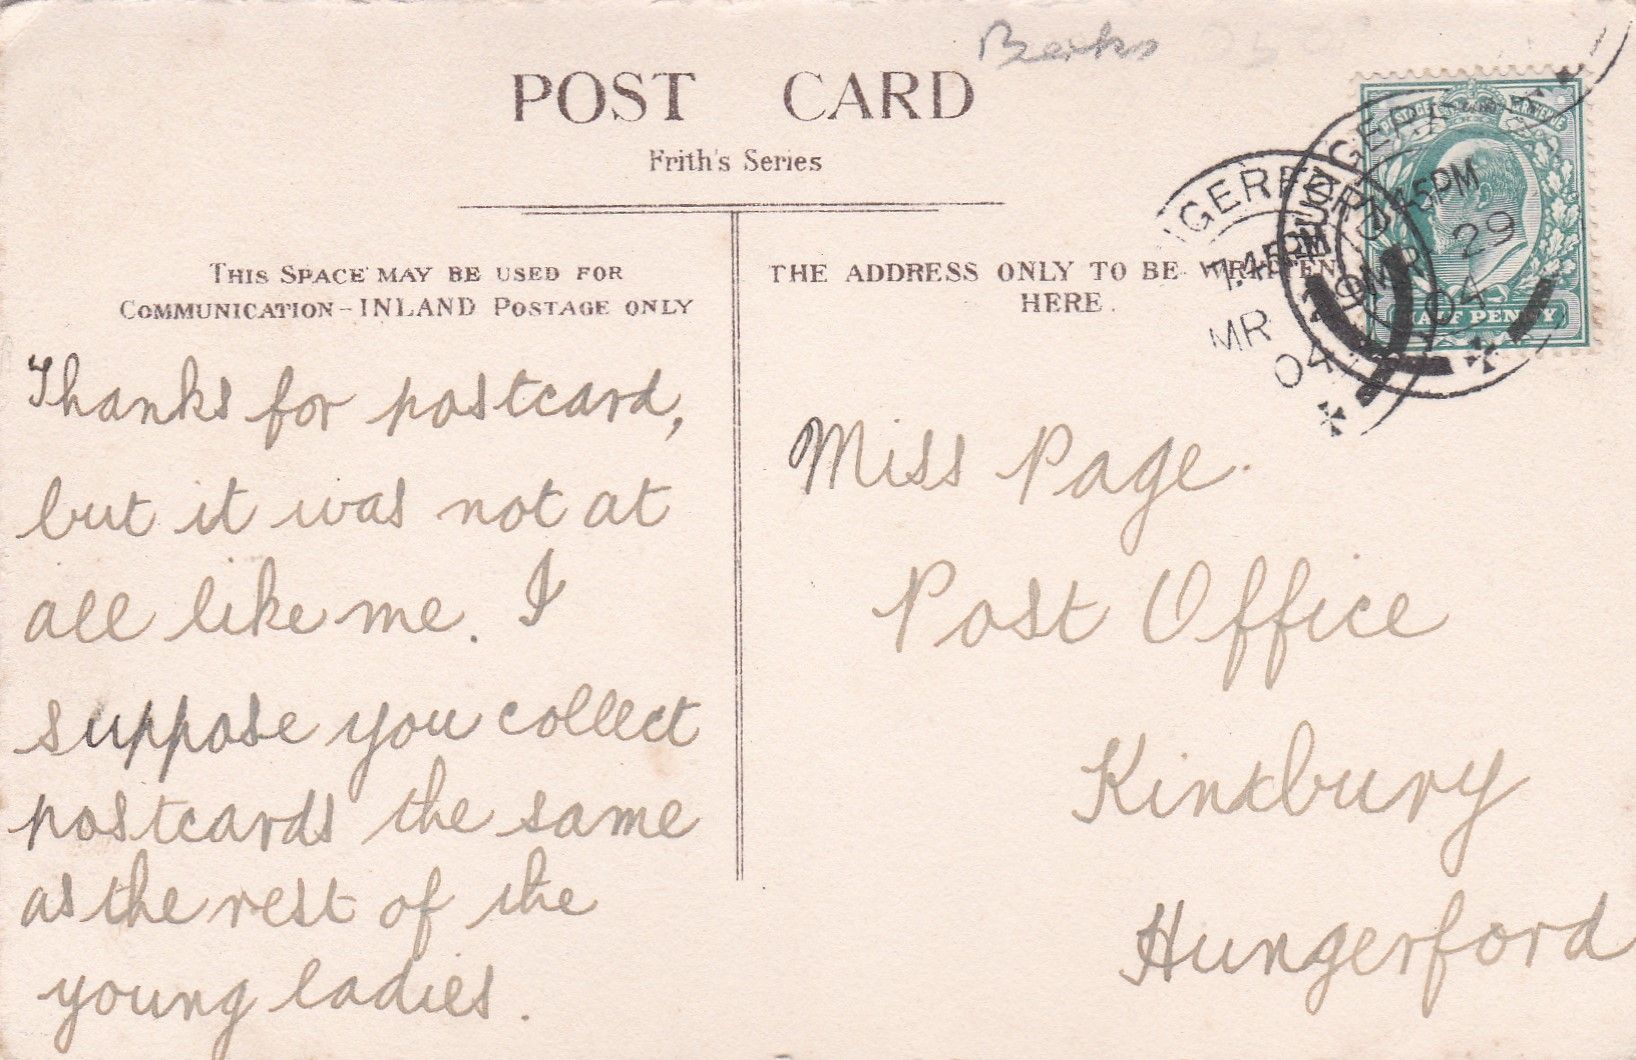 Berks
POST CARD
Frith's Series
THIS SPACE MAY BE USED FOR
COMMUNICATION - INLAND POSTAGE ONLY
THE ADDRESS ONLY TO BE WRITTEN
HERE.
Thanks for postcard,
but it was not at
all like me. I
suppose you collect
postcards the same
as the rest of the
young ladies.
Miss Page.
Post Office
Kintbury
Hungerford
GERFORD
7.45PM
MR
04
45PM
MR 29
04
HALF PENNY